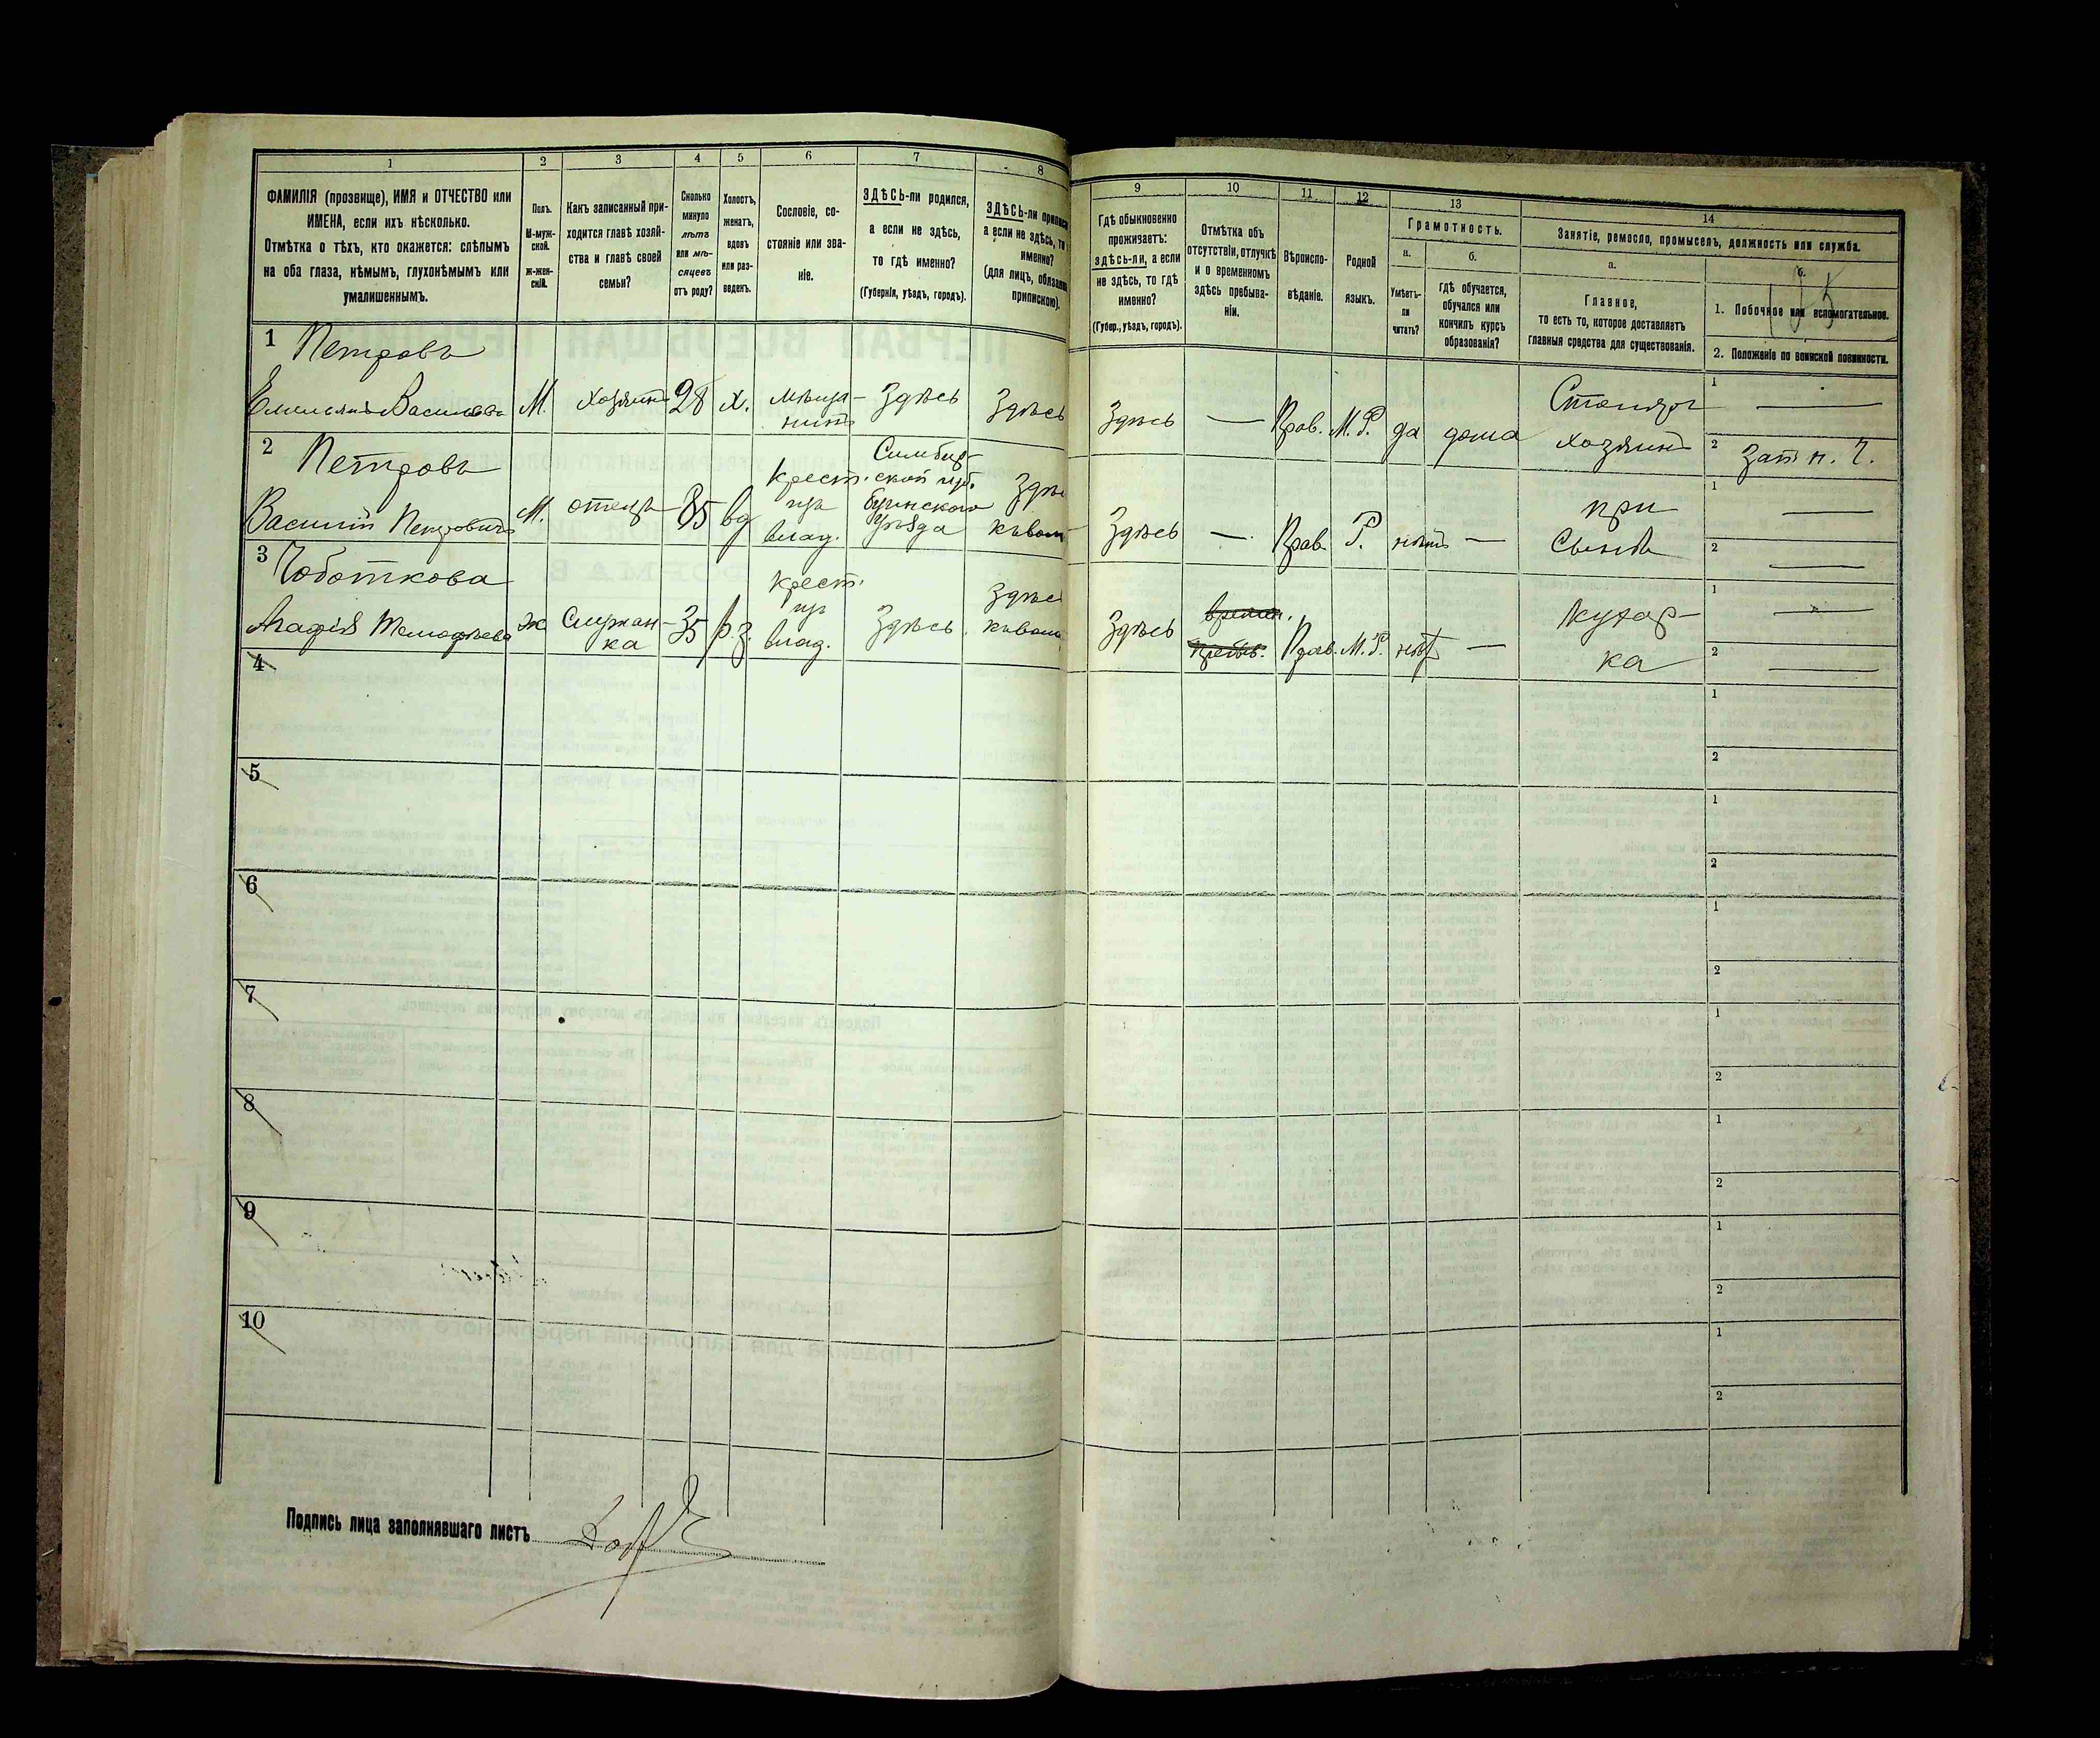 1 2 3 4 5 6 7 8
ФАМИЛІЯ (прозвище), ИМЯ и ОТЧЕСТВО или
ИМЕНА, если ихъ нѣсколько.
Отмѣтка о тѣхъ, кто окажется: слѣпымъ
на оба глаза, нѣмымъ, глухонѣмымъ или
умалишеннымъ.
Полъ.
М-муж-
ской.
ж-жен-
скій.
Какъ записанный при-
ходится главѣ хозяй-
ства и главѣ своей
семьи?
Сколько
минуло
лѣтъ
или мѣ-
сяцевъ
отъ роду?
Холостъ,
женатъ,
вдовъ
или раз-
веденъ.
Сословіе, со-
стояніе или зва-
ніе.
ЗДѢСЬ-ли родился,
а если не здѣсь,
то гдѣ именно?
(Губернія, уѣздъ, городъ).
ЗДѢСЬ-ли
а если не здѣсь, то
именно?
(для лицъ,
припискою).
1 Петровъ
Емельянъ Васильевъ М. хозяинъ 28 х. мѣща-
нинъ Здѣсь Здѣсь
2 Петровъ
Василій Петровичъ М. отецъ 85 вд Крест.
изъ
влад. Симбир-
ской губ.
уѣзда
3 Чоботкова
Агафія ж Служан-
ка 35 Крест.
изъ
влад. Здѣсь.
4
5
6
7
8
9
10
Подпись лица заполнявшаго листъ
9 10 11 12 13 14
Гдѣ обыкновенно
проживаетъ:
здѣсь-ли, а если
не здѣсь, то гдѣ
именно?
(Губер., уѣздъ, городъ).
Отмѣтка объ
отсутствіи, отлучкѣ
и о временномъ
здѣсь пребыва-
ніи.
Вѣроиспо-
вѣданіе.
Родной
языкъ.
Грамотность.
а.
Умѣетъ-
ли
читать?
б.
гдѣ обучается,
обучался или
кончилъ курсъ
образованія?
Занятіе, ремесло, промыселъ, должность или служба.
а.
Главное,
то есть то, которое доставляетъ
главныя средства для существованія.
б.
1. Побочное или вспомогательное.
2. Положеніе по воинской повинности.
Здѣсь — Прав. М.Р. да дома Столяръ
хозяинъ
1 —
2
Здѣсь — Прав. Р. нѣтъ — при
Сынѣ
1 —
2 —
Здѣсь времен.
Прав. М.Р. нѣтъ — Кухар-
ка
1 —
2 —
1
2
1
2
1
2
1
2
1
2
1
2
1
2